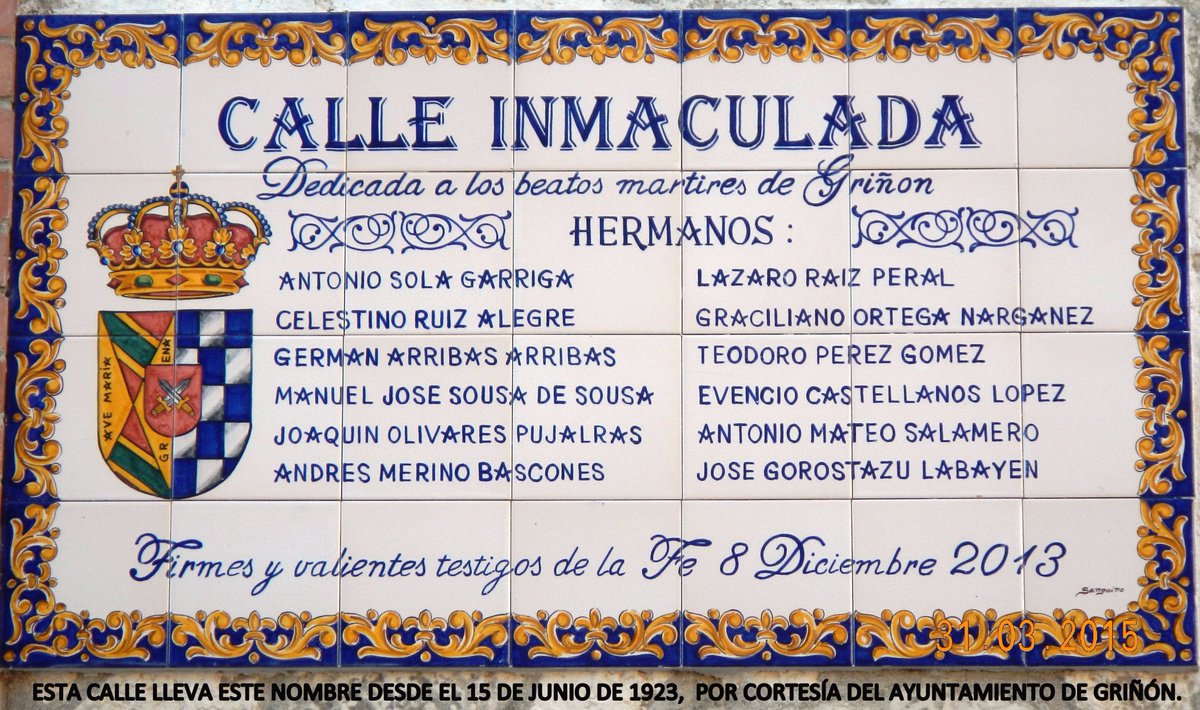 CALLE INMACULADA
Dedicada a los beatos martires de Griñon
HERMANOS :
ANTONIO SOLA GARRIGA
CELESTINO RUIZ ALEGRE
GERMAN ARRIBAS ARRIBAS
MANUEL JOSE SOUSA DE SOUSA
JOAQUIN OLIVARES PUJALRAS
ANDRES MERINO BASCONES
LAZARO RAIZ PERAL
GRACILIANO ORTEGA NARGANEZ
TEODORO PEREZ GOMEZ
EVENCIO CASTELLANOS LOPEZ
ANTONIO MATEO SALAMERO
JOSE GOROSTAZU LABAYEN
AVE MARÍA
GR ENA
Firmes y valientes testigos de la Fe 8 Diciembre 2013
Sanguino
31.03.2015
ESTA CALLE LLEVA ESTE NOMBRE DESDE EL 15 DE JUNIO DE 1923, POR CORTESÍA DEL AYUNTAMIENTO DE GRIÑÓN.